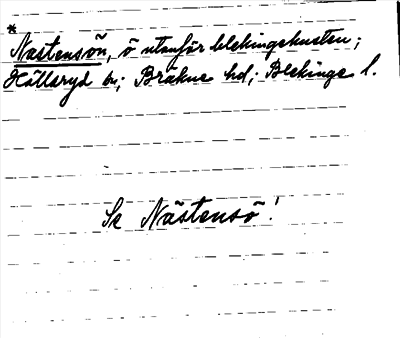 *
Nastensön, ö utanför blekingekusten;
Hällaryd sn; Bräkne hd; Blekinge l.
Se Nästensö!